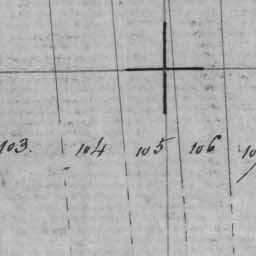 103. 104 105 106